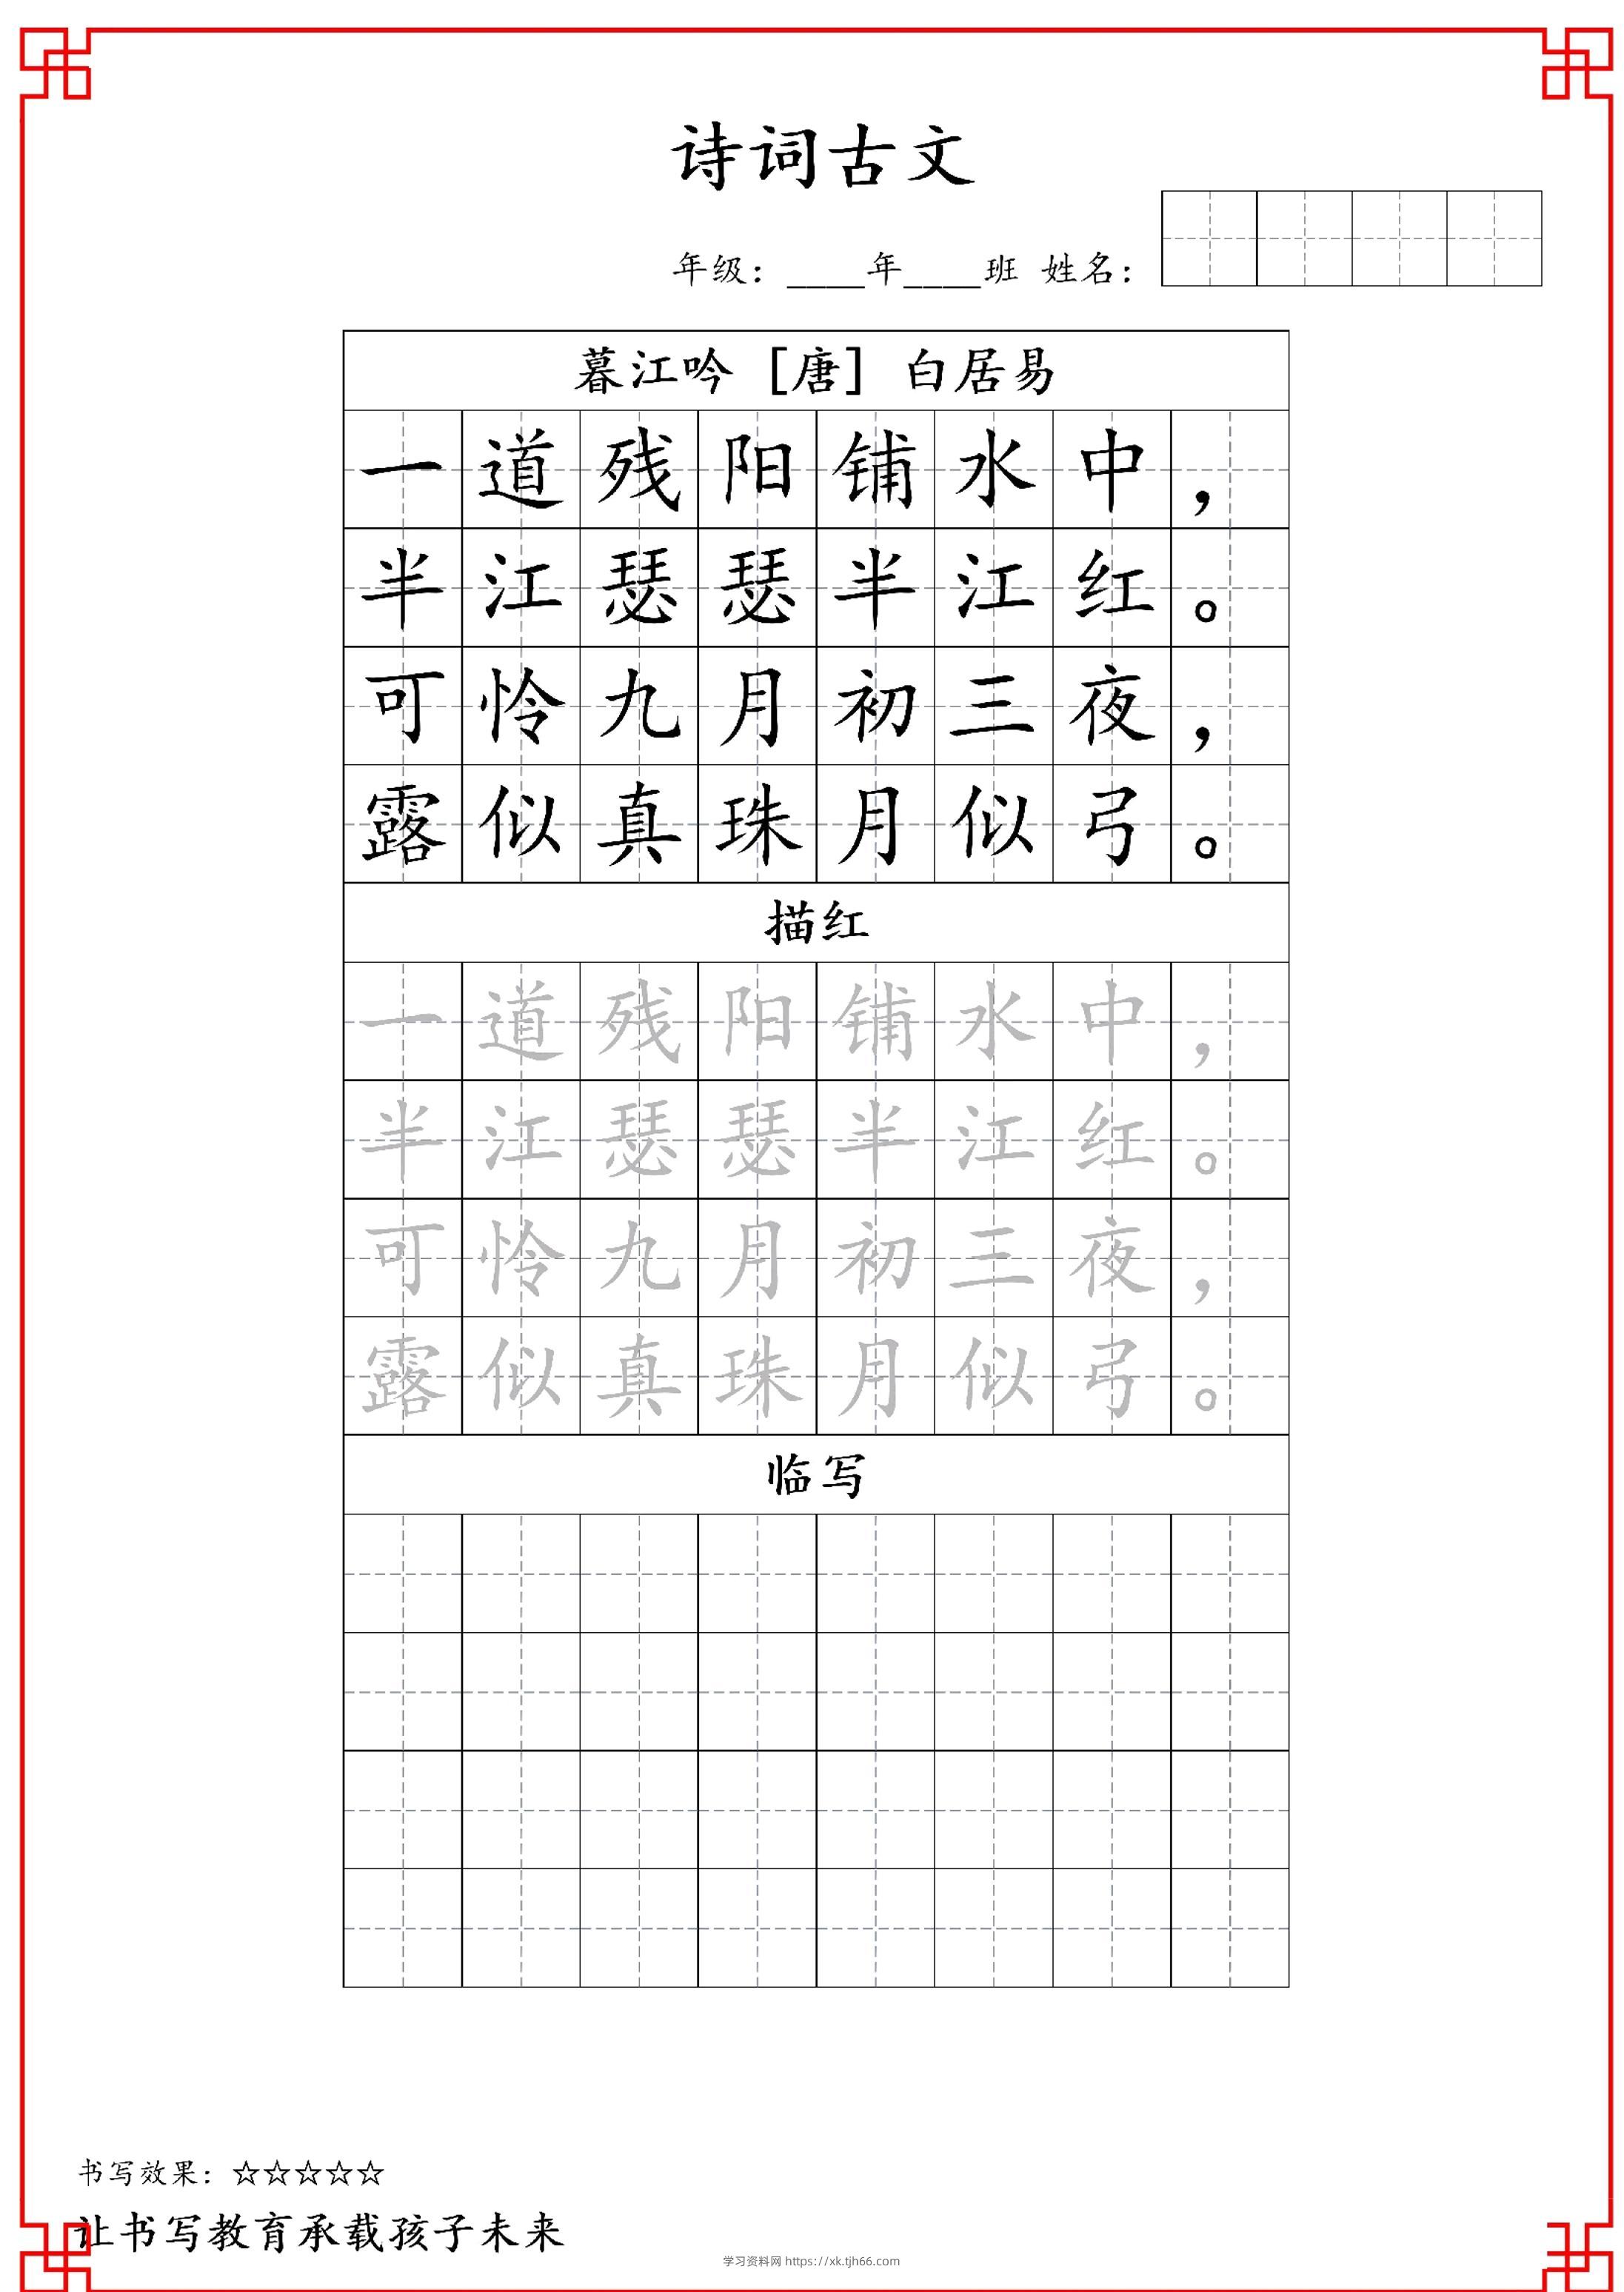 诗词古文
年级：____年____班 姓名：
暮江吟 [唐] 白居易
一道残阳铺水中，
半江瑟瑟半江红。
可怜九月初三夜，
露似真珠月似弓。
描红
一道残阳铺水中，
半江瑟瑟半江红。
可怜九月初三夜，
露似真珠月似弓。
临写
书写效果：☆☆☆☆☆
让书写教育承载孩子未来
学习资料网 https://xk.tjh66.com